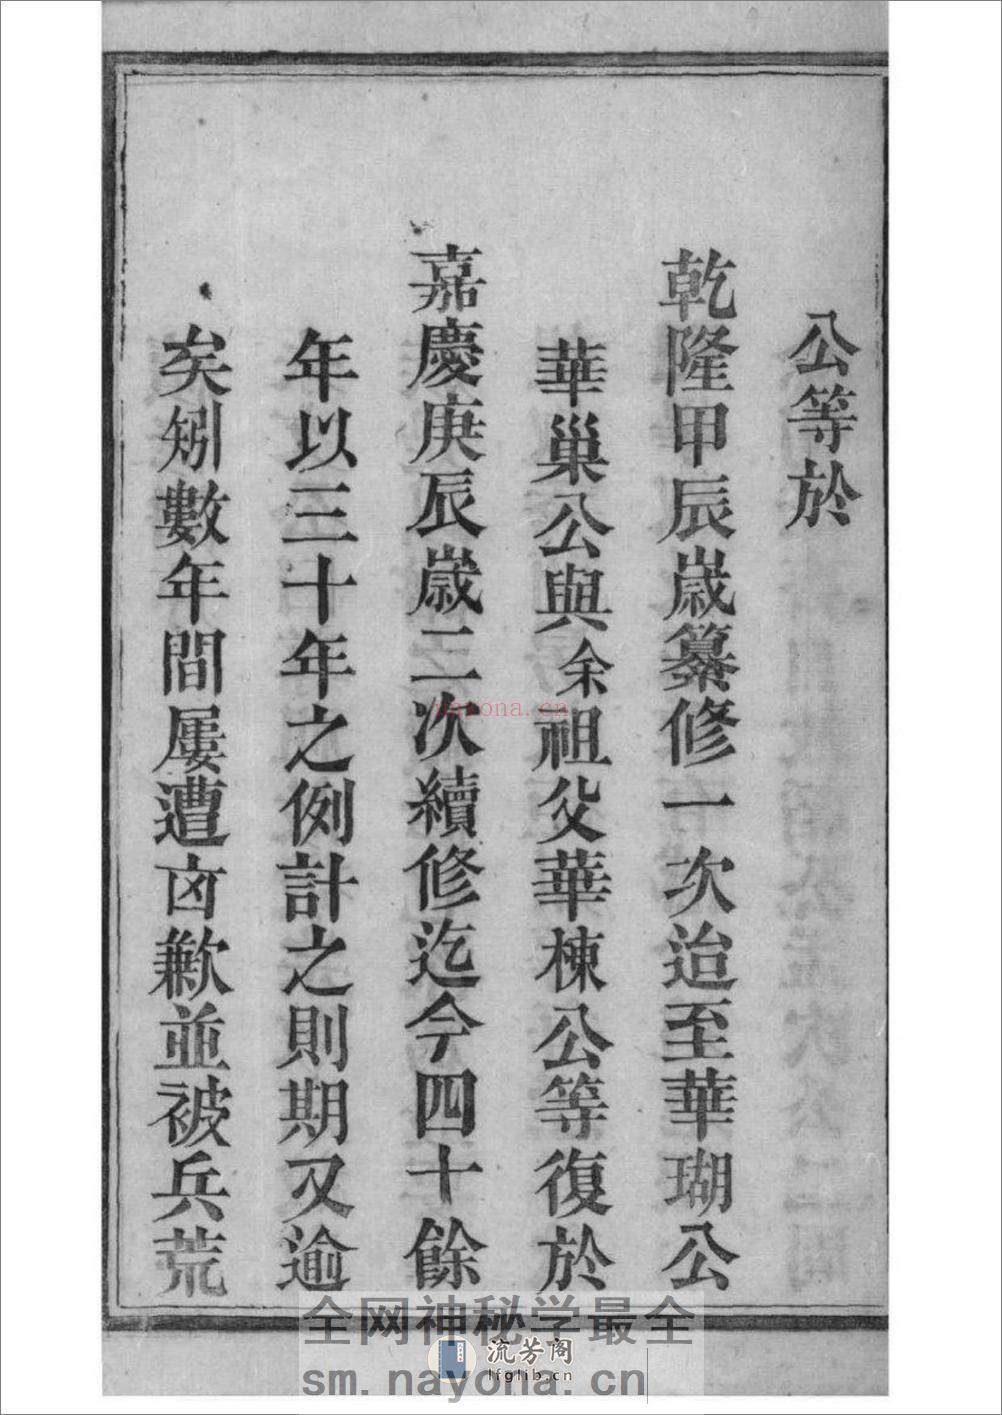 公等於
乾隆甲辰歲纂修一次迨至華瑚公
華巢公與余祖父華棟公等復於
嘉慶庚辰歲二次續修迄今四十餘
年以三十年之例計之則期又逾
矣矧數年間屢遭凶歉並被兵荒
nayona.cn
全网神秘学最全
流芳阁
lfglib.cn
sm.nayona.cn